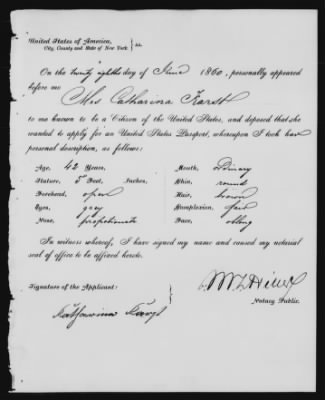 United States of America,
City, County and State of New York } ss.
On the twenty eighth day of June 1860, personally appeared
before me
Mrs Catharina Karst
to me known to be a Citizen of the United States, and deposed that she
wanted to apply for an United States Passport, whereupon I took her
personal description, as follows:
Age, 42 Years, Mouth, Ordinary
Stature, 5 Feet, Inches, Chin, round
Forehead, open Hair, brown
Eyes, grey Complexion, fair
Nose, proportionate Face, oblong
In witness whereof, I have signed my name and caused my notarial
seal of office to be affixed hereto.
Signature of the Applicant:
Notary Public.